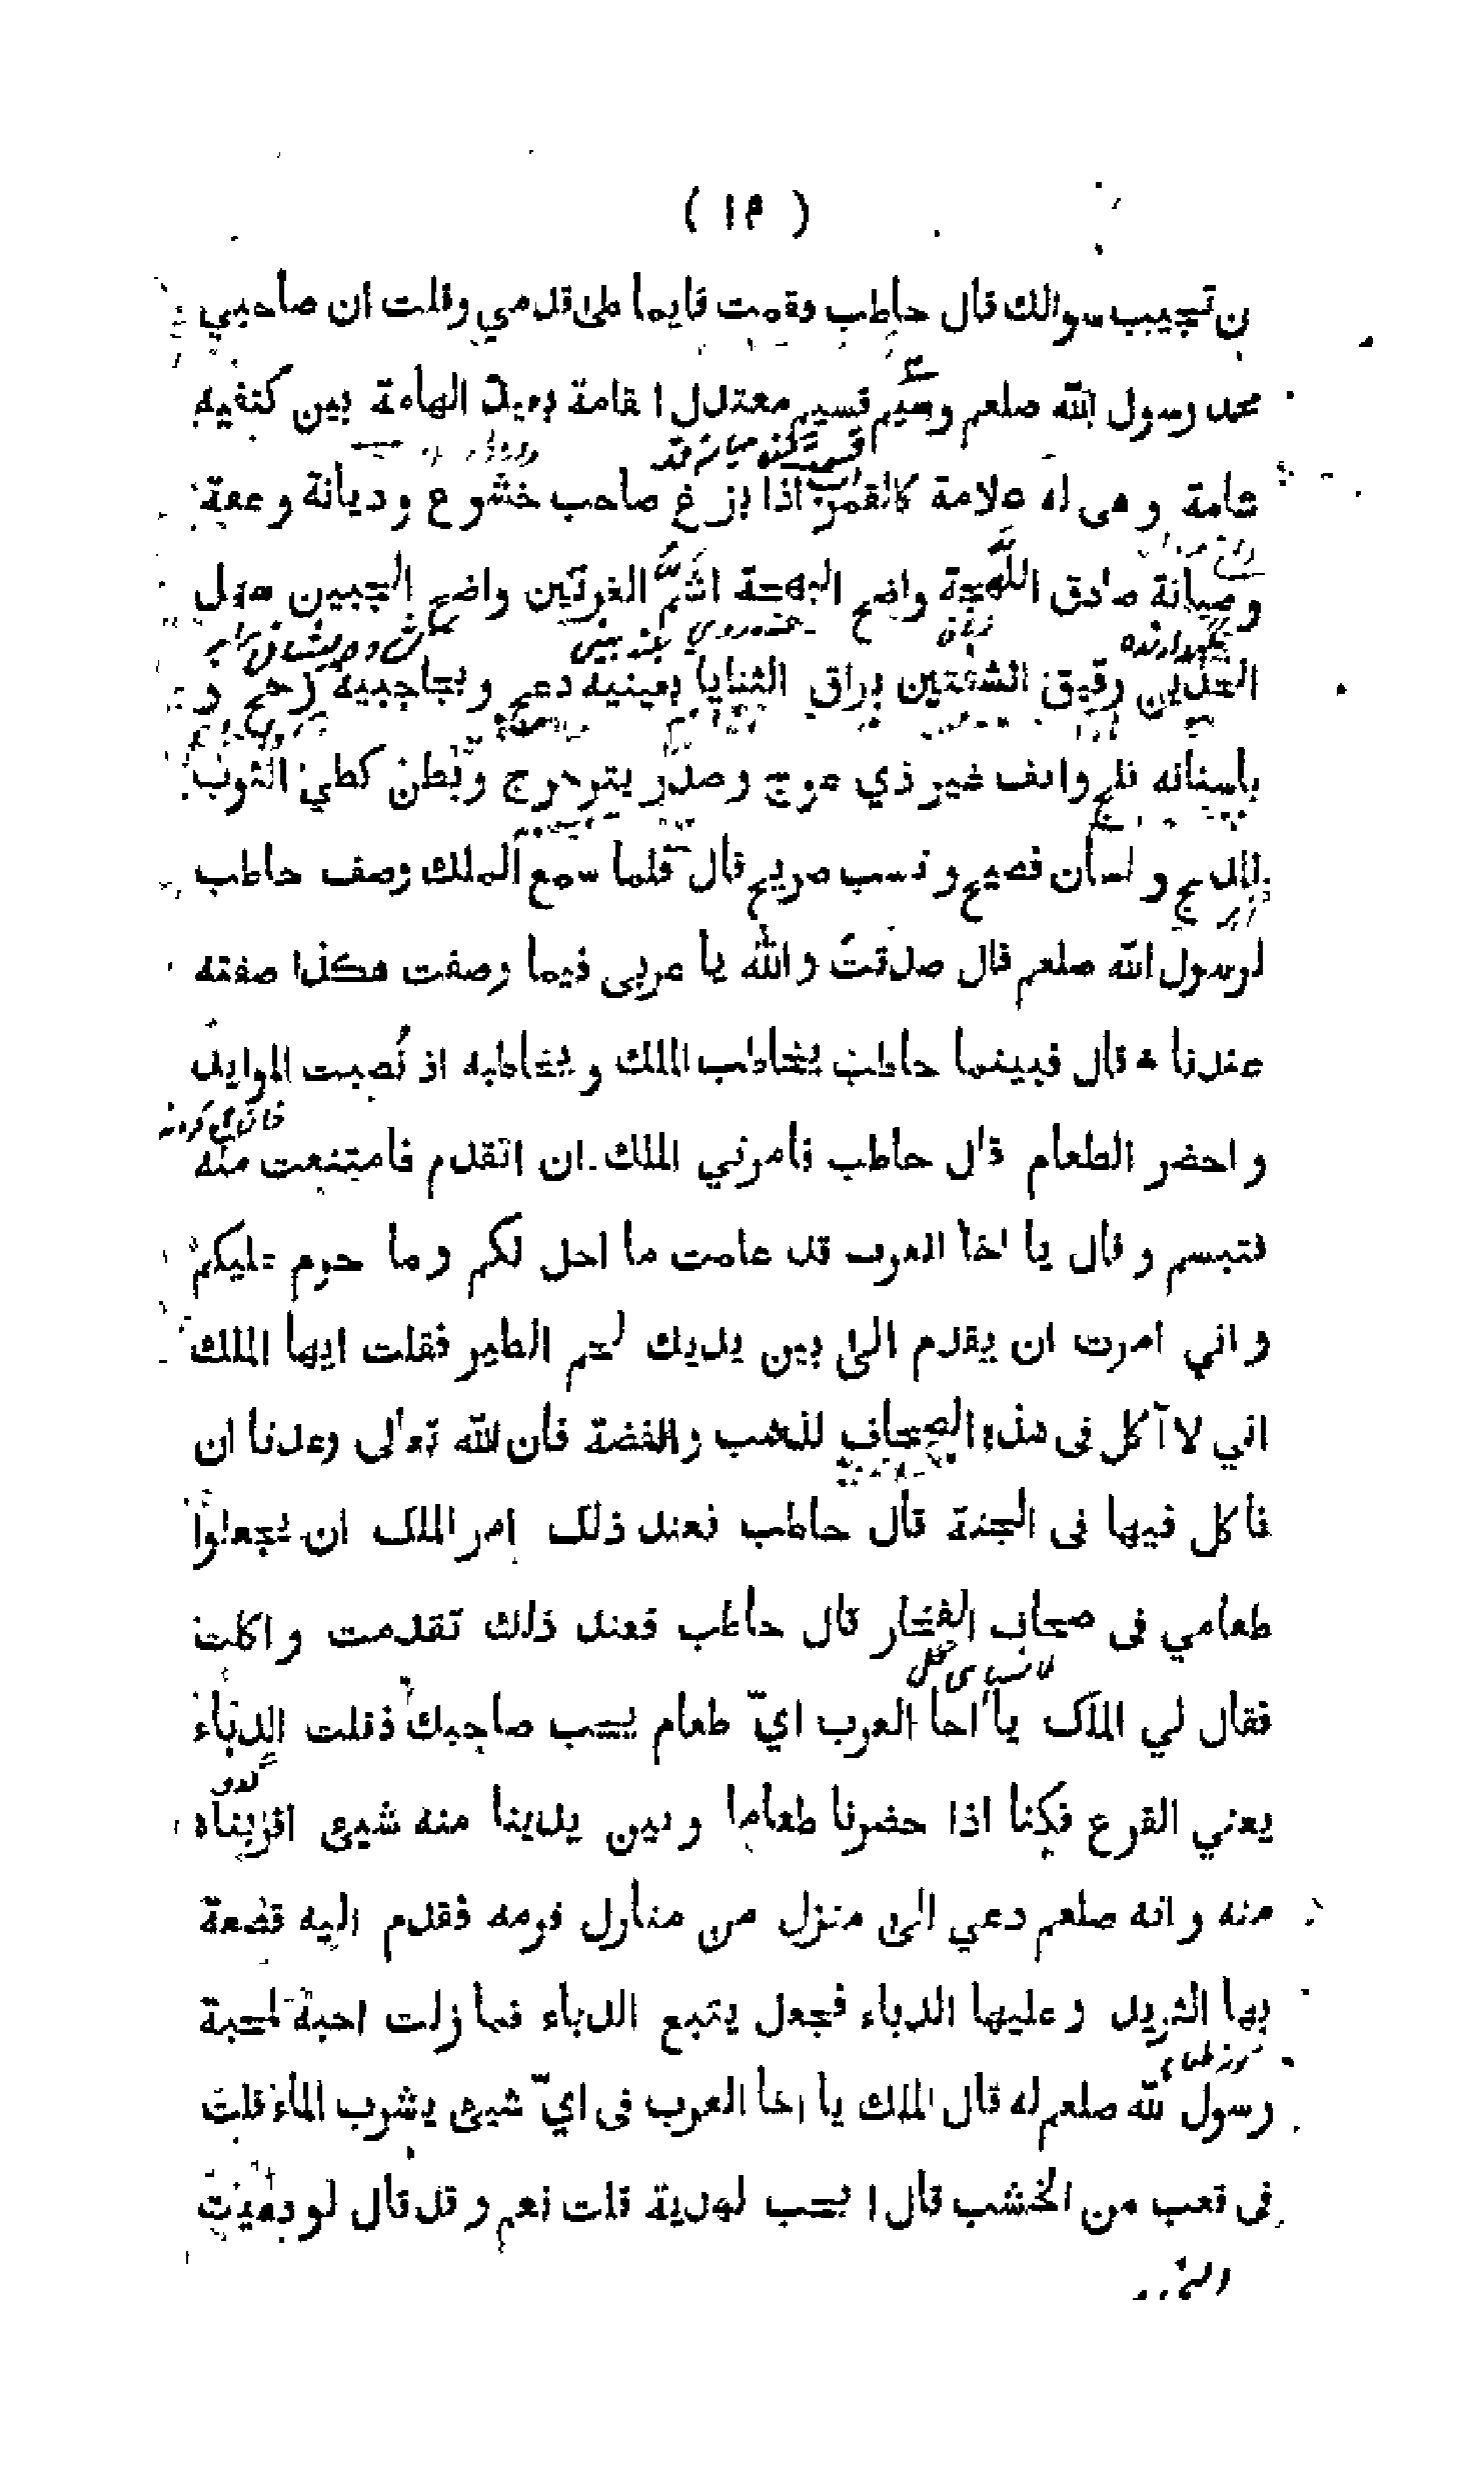 ( ١٩ )
ن تجيب سوالك قال حاطب وقمت قايما على قدمي وقلت ان صاحبي
محمد رسول الله صلعم وسيم قسيم معتدل ا لقامة بعيد الهامة بين كتفيه
شامة و هى له علامة كالقمر اذا بزغ صاحب خشوع و ديانة و عفة
وصيانة صادق اللهجة واضح البهجة اشم العرنين واضح الجبين سهل
الخدين رقيق الشفتين براق الثنايا بعينيه دعج و بحاجبيه زجج و
باسنانه فلج وانف غير ذي عوج وصدر يترجرج وبطن كطي الثوب
المدبج و لسان فصيح و نسب صريح قال فلما سمع الملك وصف حاطب
لرسول الله صلعم قال صدقت والله يا عربى فيما وصفت هكذا صفته
عندنا ه قال فبينما حاطب يخاطب الملك و يخاطبه اذ نُصبت الموايد
و احضر الطعام قال حاطب فأمرني الملك ان اتقدم فامتنعت منه
فتبسم و قال يا اخا العرب قد علمت ما احل لكم و ما حرم عليكم
و اني امرت ان يقدم الى بين يديك لحم الطير فقلت ايها الملك
اني لا آكل فى هذه الصحاف لذهب والفضة فان الله تعالى وعدنا ان
نأكل فيها فى الجنة قال حاطب فعند ذلك امر الملك ان يجعلوا
طعامي فى صحاف الفخار قال حاطب فعند ذلك تقدمت و اكلت
فقال لي الملك يا اخا العرب ايّ طعام يحب صاحبك فقلت الدباء
يعني القرع فكنا اذا حضرنا طعاما و بين يدينا منه شيئ اقربناه
منه و انه صلعم دعي الى منزل من منازل قومه فقدم اليه قصعة
بها الثريد وعليها الدباء فجعل يتبع الدباء فما زلت احبه لمحبة
رسول لله صلعم له قال الملك يا اخا العرب فى ايّ شيئ يشرب الماء قلت
فى قعب من الخشب قال ا يحب لهدية قلت نعم و قد قال لو دعيت